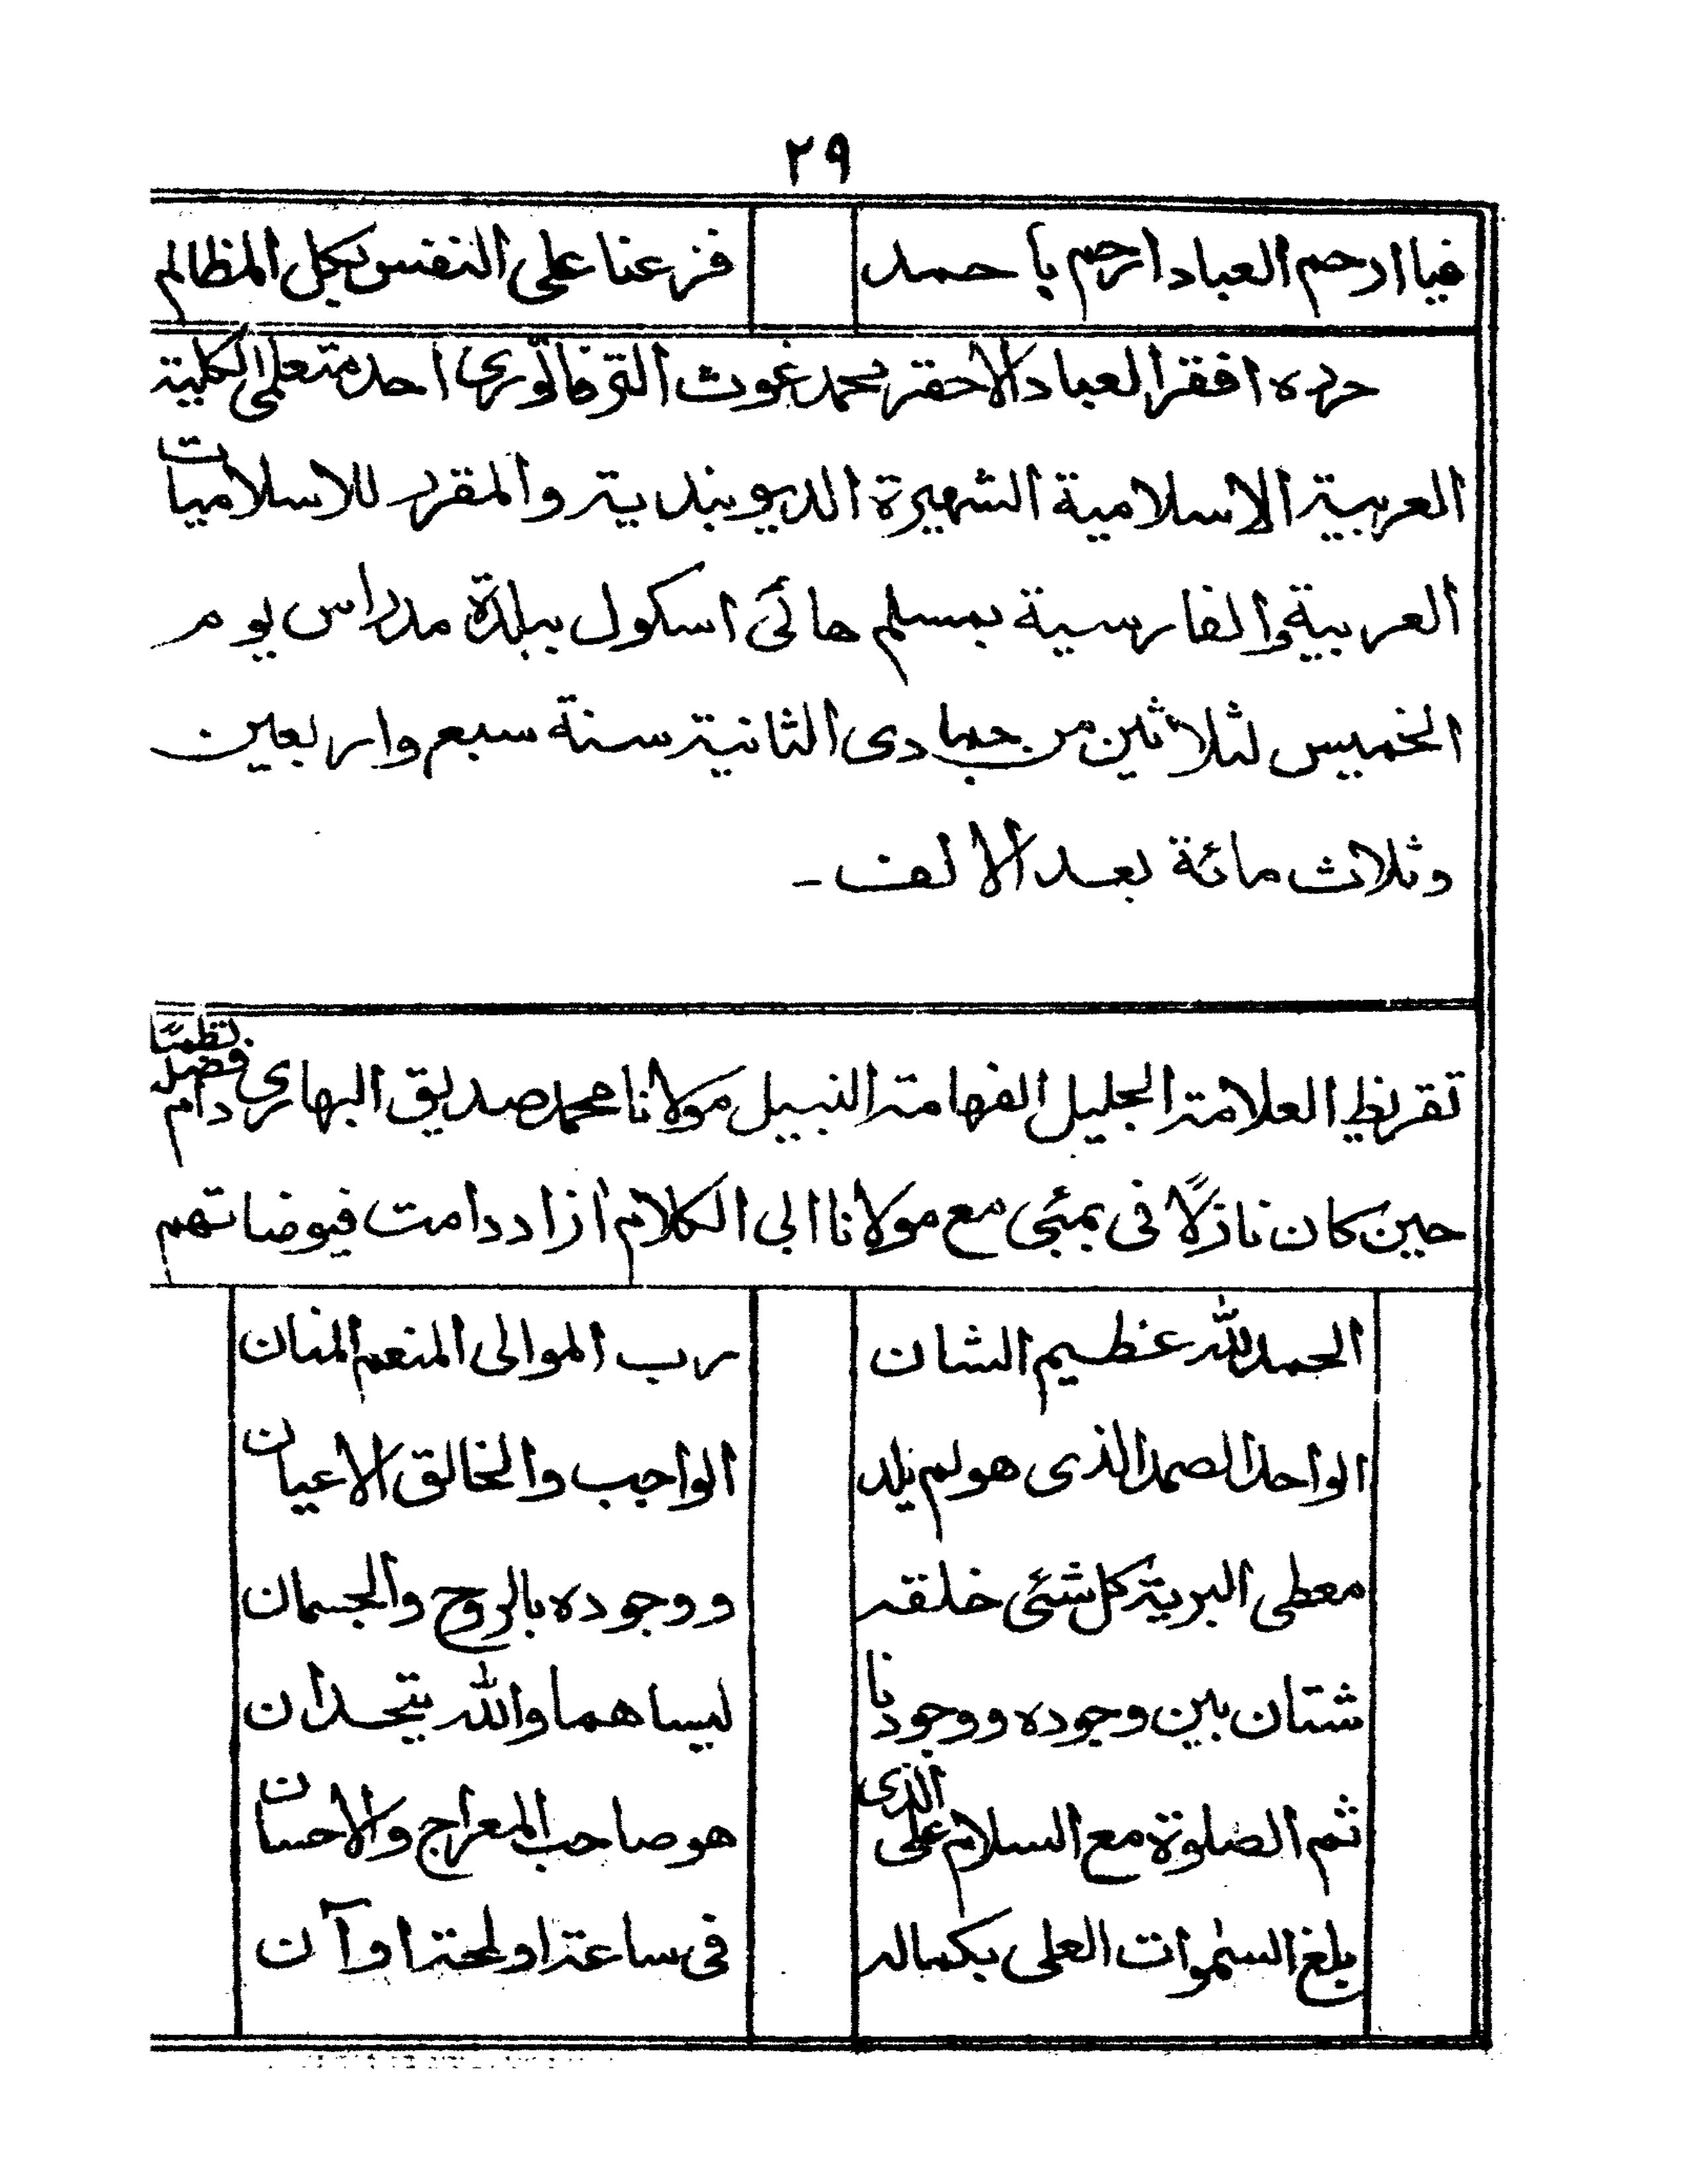 ٢٩
فيا ارحم العباد ارحم بأحمد فزعنا على النفس بكل المظالم
حرره افقر العباد الاحقر محمد غوث الترفاتوري احد متعلمى الكلية
العربية الاسلامية الشهيرة الديوبندية والمقرر للاسلاميات
العربية والفارسية بمسلم هائى اسكول ببلدة مدراس يوم
الخميس لثلاثين من جمادى الثانية سنة سبع واربعين
وثلاث مائة بعد الالف -
تقريظ العلامة الجليل الفهامة النبيل مولانا محمد صديق البهاري دام فضله نظمًا
حين كان نازلًا فى بمبئى مع مولانا ابى الكلام ازاد دامت فيوضاتهم
الحمد لله عظيم الشان رب الموالى المنعم المنان
الواحد الصمد الذى هو لم يلد الواجب والخالق الاعيان
معطى البرية كل شئى خلقه ووجوده بالروح والجسمان
شتان بين وجوده ووجودنا ليسا هما والله يتحدان
ثم الصلوة مع السلام على الذى هو صاحب المعراج والاحسان
بلغ السمٰوات العلى بكماله فى ساعة او لمحة او آن